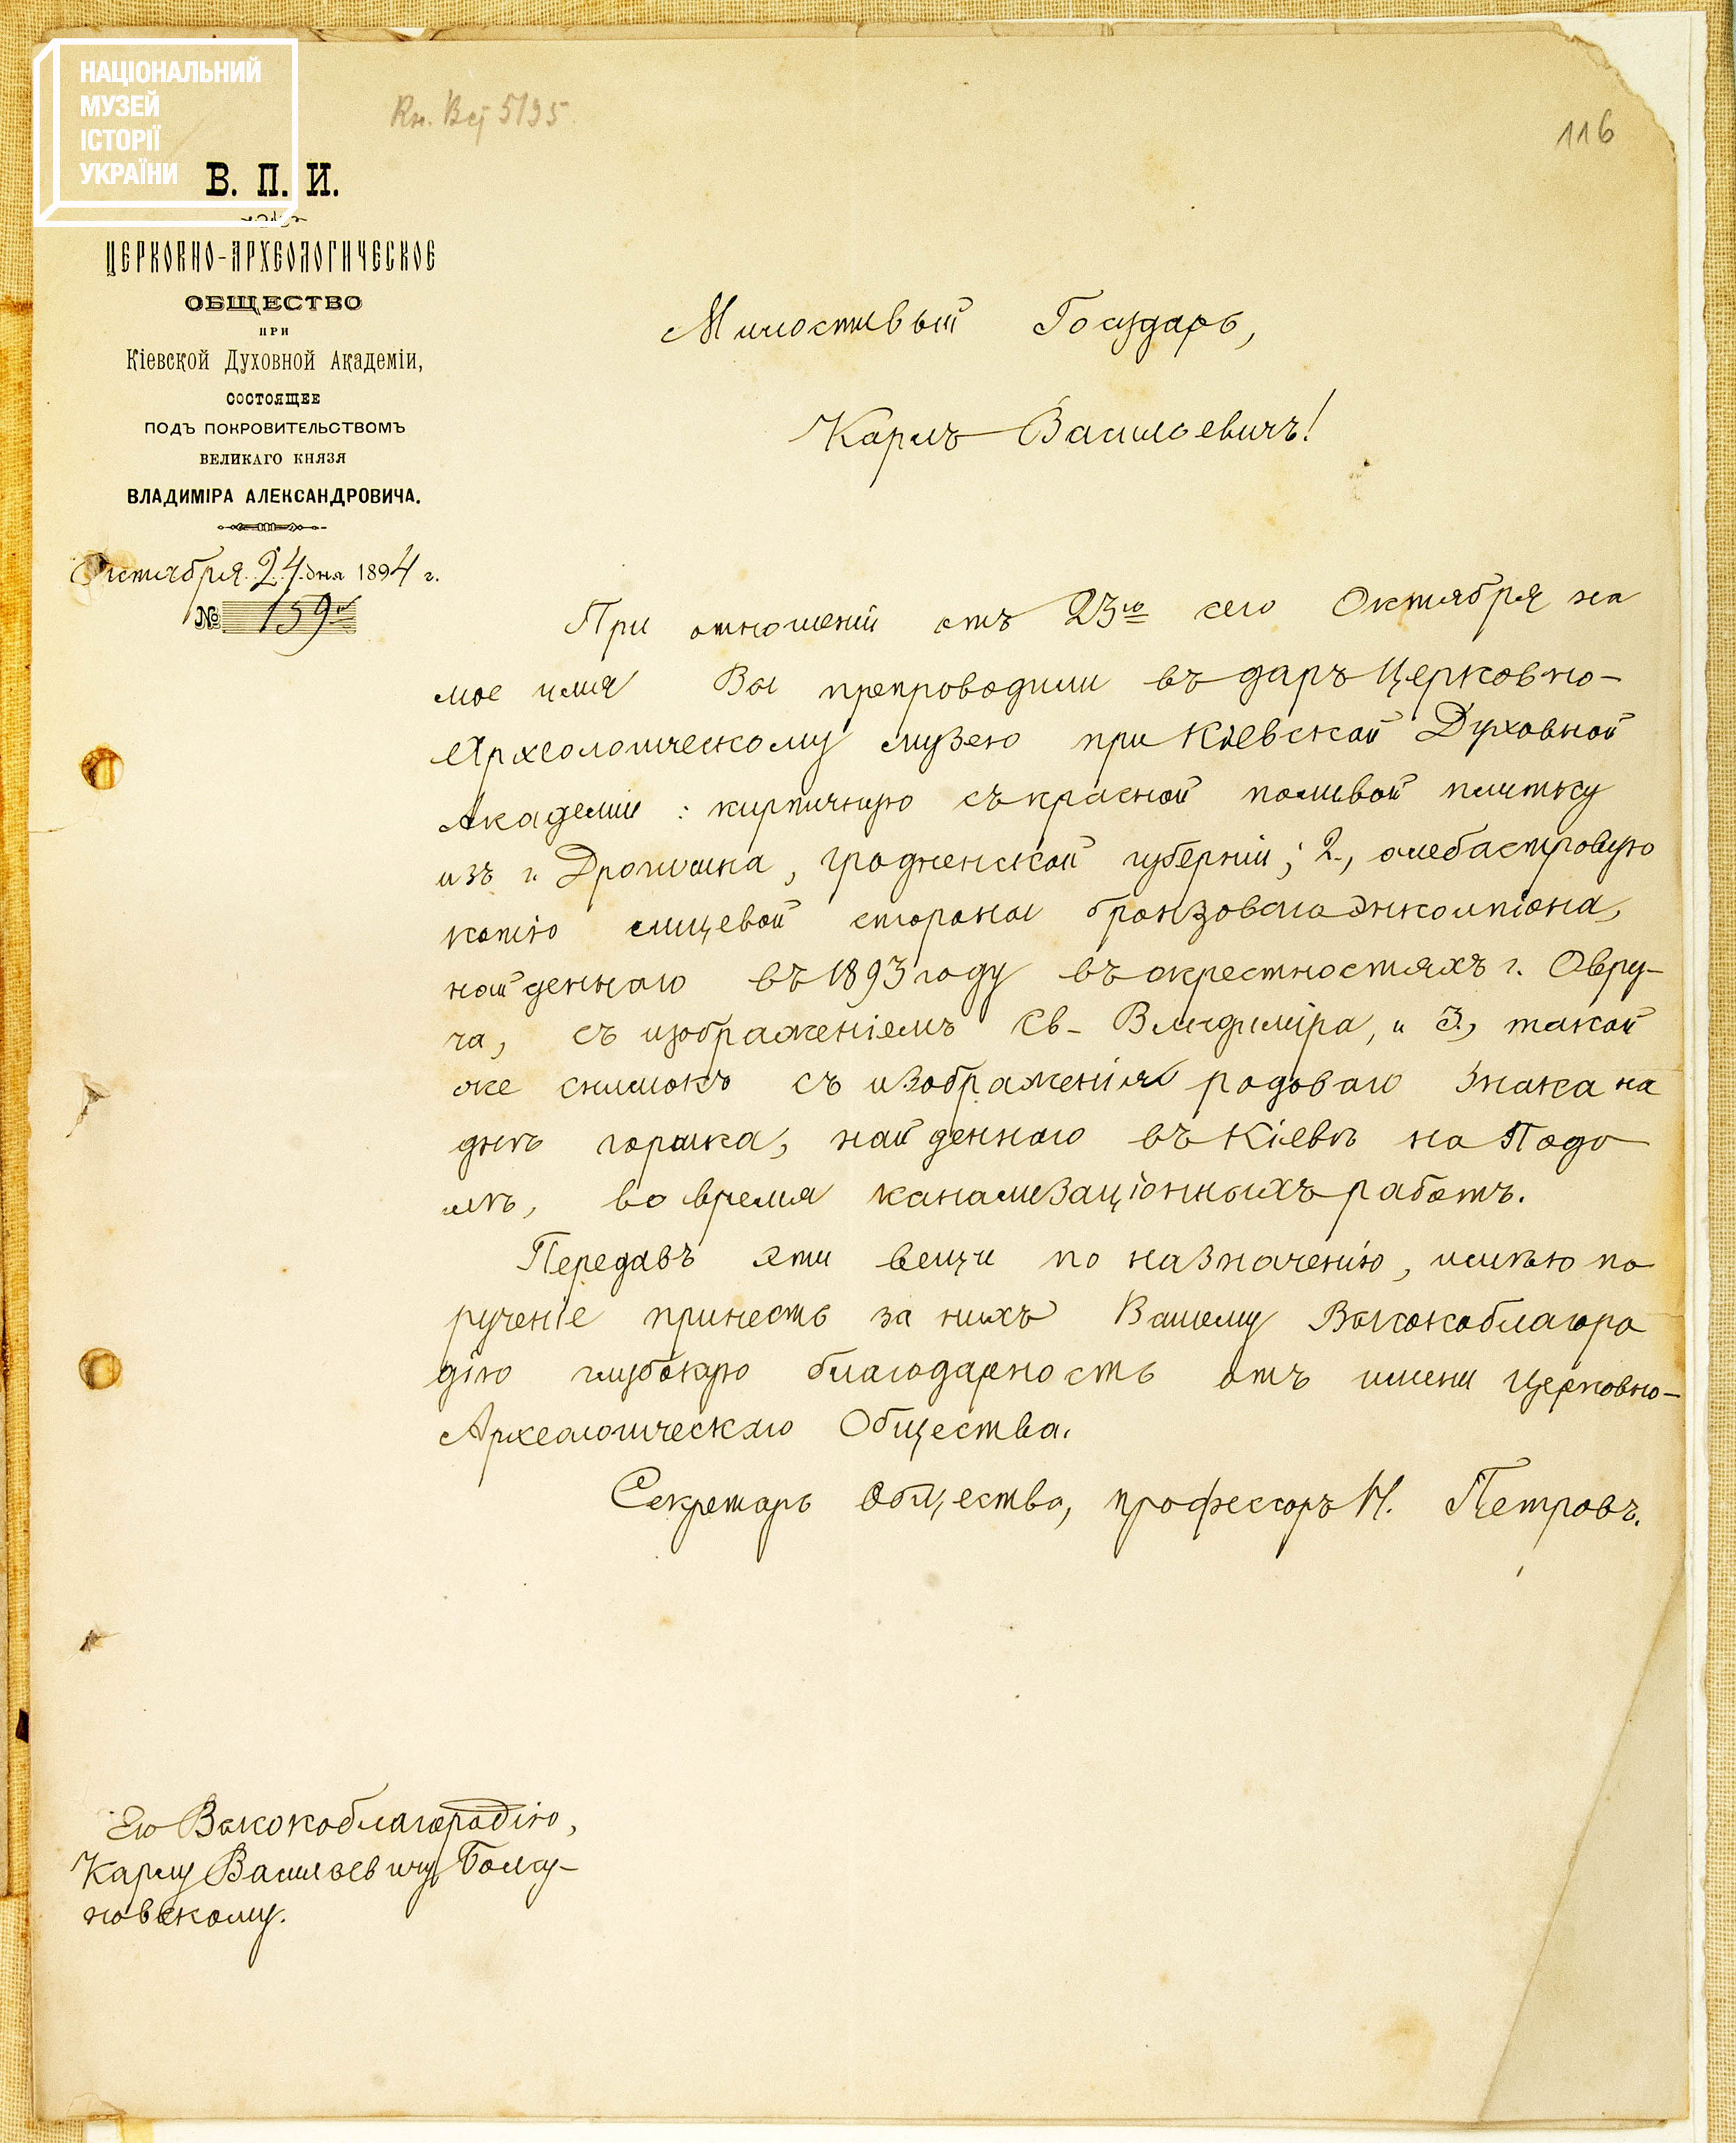 НАЦІОНАЛЬНИЙ
МУЗЕЙ
ІСТОРІЇ
УКРАЇНИ
116
В. П. И.
ЦЕРКОВНО-АРХЕОЛОГИЧЕСКОЕ
ОБЩЕСТВО
ПРИ
Кіевской Духовной Академіи,
СОСТОЯЩЕЕ
ПОДЪ ПОКРОВИТЕЛЬСТВОМЪ
ВЕЛИКАГО КНЯЗЯ
ВЛАДИМІРА АЛЕКСАНДРОВИЧА.
Октября 24 дня 1894 г.
№ 159
Милостивый Государь,
Карлъ Васильевичъ!
При отношеніи отъ 23го сего Октября на
мое имя Вы препроводили въ даръ Церковно-
Археологическому музею при Кіевской Духовной
Академіи: кирпичную съ красной поливой плитку
изъ г. Дрогичина, гродненской губерніи; 2., алебастровую
копію лицевой стороны бронзоваго энколпіона,
найденнаго въ 1893 году въ окрестностяхъ г. Овру-
ча, съ изображеніемъ Св. Владиміра, и 3., такой
же снимокъ съ изображенія родоваго знака на
днѣ горшка, найденнаго въ Кіевѣ на Подо
лѣ, во время канализаціонныхъ работъ.
Передавъ эти вещи по назначенію, имѣю по
рученіе принесть за нихъ Вашему Высокоблагоро
дію глубокую благодарность отъ имени Церковно-
Археологическаго Общества.
Секретарь Общества, профессоръ Н. Петровъ.
Его Высокоблагородію,
Карлу Васильевичу Болсу-
новскому.